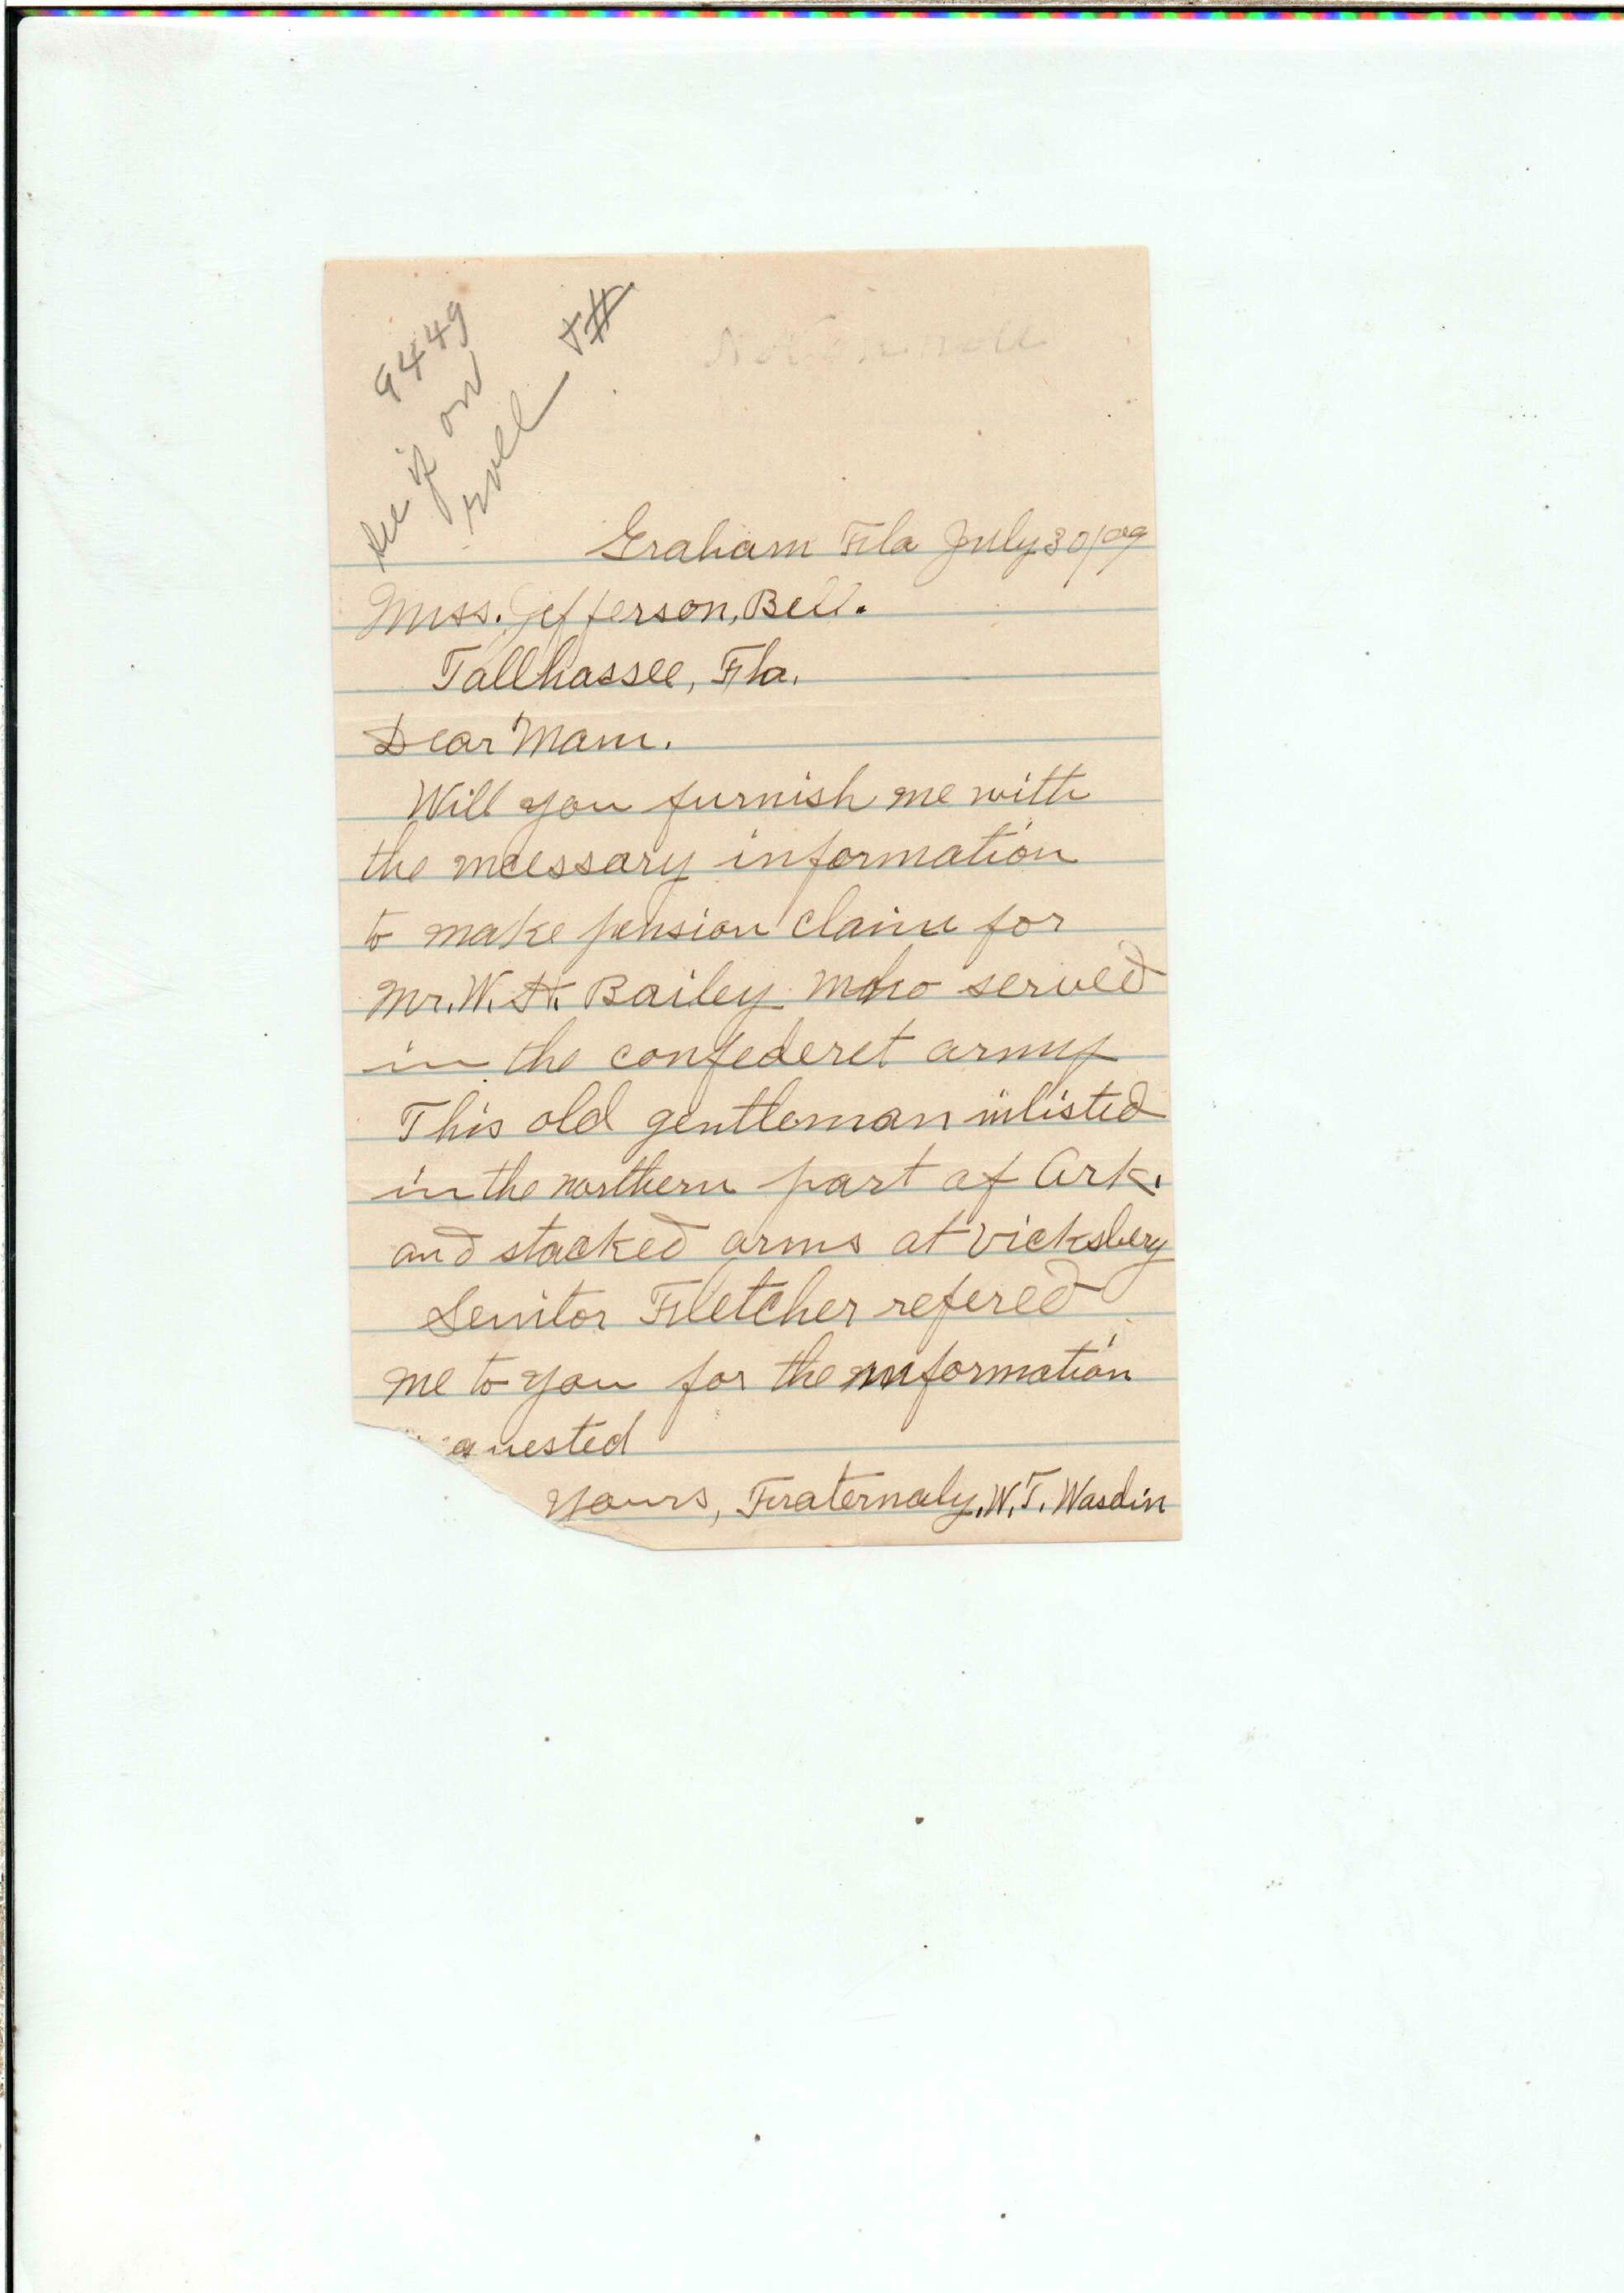 9449
see if on
roll
Not on roll
Graham Fla July 30/09
Miss. Jefferson, Bell.
Tallhassee, Fla.
Dear Mam.
Will you furnish me with
the necessary information
to make pension claim for
Mr. W. H. Bailey who served
in the confederet army
This old gentleman inlisted
in the northern part of Ark.
and stacked arms at Vicksbery
Senitor Fletcher refered
me to you for the information
quested
Yours, Fraternaly, W. T. Wasdin